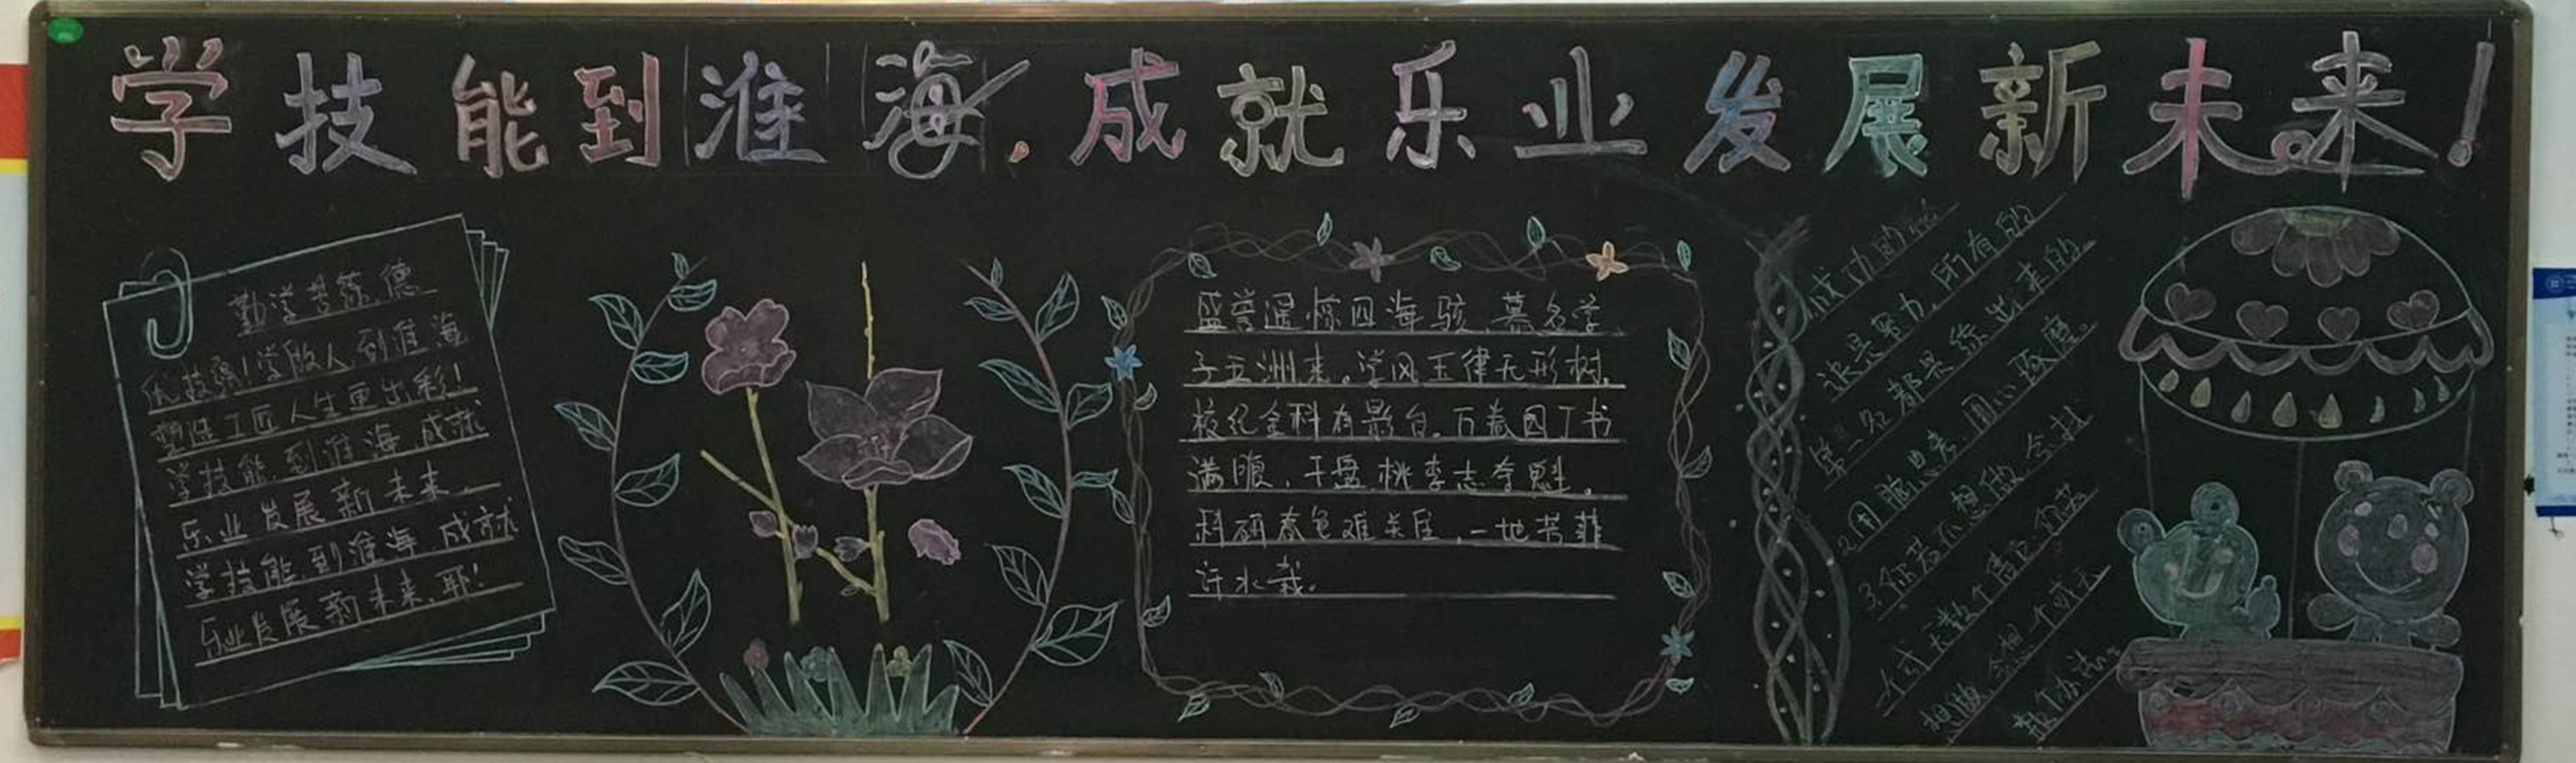 学技能到淮海,成就乐业发展新未来!
勤学苦练德
优技强!学做人到淮海
塑造工匠人生更出彩!
学技能,到淮海,成就
乐业发展新未来,
学技能,到淮海 成就
乐业发展新未来,耶!
盛誉遥惊四海骇,慕名学
子五洲来。学风玉律无形树,
校纪金科有影台。万卷园丁书
满腹,千盘桃李志夺魁。
科研春色难关住,一地书菲
汗水栽。
1.成功的
诀是努力,所有的
第一名都是练出来的
2.用脑思考,用心琢磨。
3.你若不想做,会找
一个或无数个借口,你若
想做,会想一个或无
数个办法。